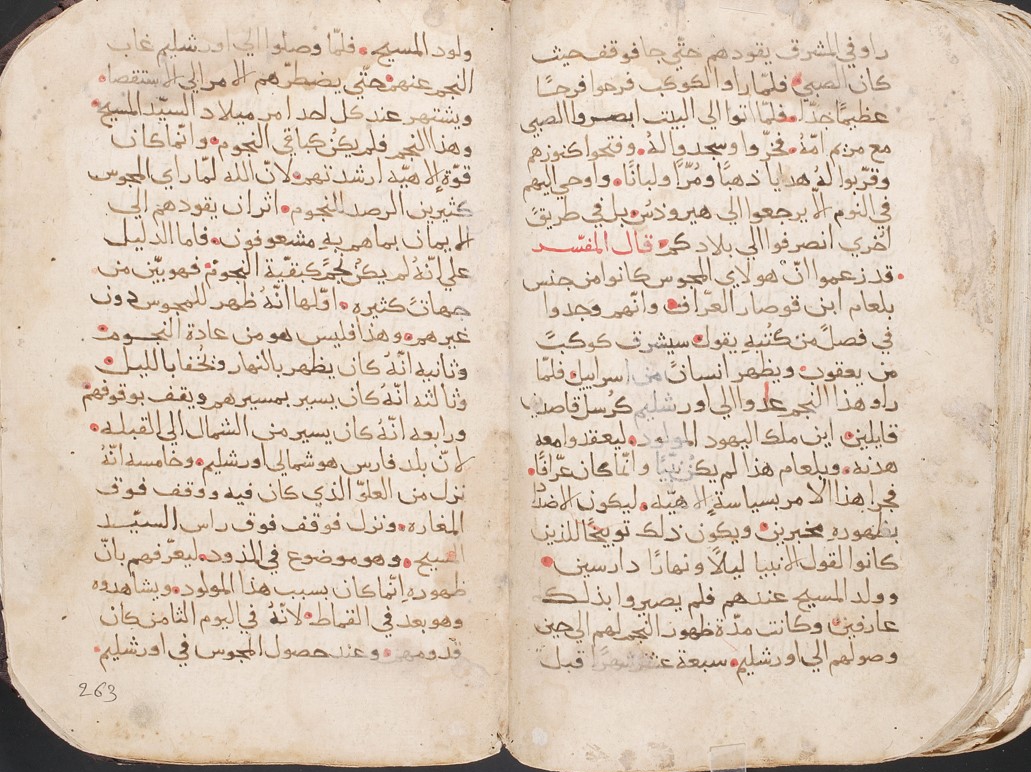 راو في المشرق يقودهم حتّي جا فوقف حيث
كان الصبي فلمّا راو الكوكب فرحوا فرحًا
عظيمًا جدًا فلمّا اتوا الي البيت ابصروا الصبي
مع مريم امّهُ فخرّوا وسجدوا لهُ وفتحوا كنوزهم
وقرّبوا لهُ هدايا ذهبًا ومُرًّا ولبانًا واوحي اليهم
في النوم الّا يرجعوا الي هيرودس بل في طريقٍ
اخري انصرفوا الي بلادكم قال المفسّر
قد زعموا انّ هولاي المجوس كانوا من جنس
بلعام ابن قوصار العرّاف وانّهم وجدوا
في فصلً من كُتبهِ يقول سيشرق كوكبً
من يعقوب ويظهر انسانً من اسراييل فلمّا
راو هذا النجم غدوا الي اورشليم كرُسل قاصد
قايلين اين ملك اليهود المولود ليعقدوا معه
هدنه وبلعام هذا لم يكن نبيًّا وانّما كان عرّافًا
فجرا هذا الامر بسياسةٍ الاهيّه ليكون الاضداد
بظهوره مخبرين ويكون ذلك توبيخًا للذين
كانوا لقول الانبيا ليلًا ونهارًا دارسين
وولد المسيح عندهم فلم يصيروا بذلك
عارفين وكانت مدّة ظهور النجم لهم الي حين
وصولهم الي اورشليم سبعة عشر شهرًا قبل
ولود المسيح فلمّا وصلوا الي اورشليم غاب
النجم عنهم حتّي يضطرّهم الامر الي الاستقصا
ويشتهر عند كل احد امر ميلاد السيّد المسيح
وهذا النجم فلم يكن كباقي النجوم وانّما كان
قوّة الاهيّه ارشدتهم لانّ الله لمّا راي المجوس
كثيرين الرصد للنجوم اثر ان يقودهم الي
الايمان بما هم بهِ مشغوفون فاما الدليل
علي انّهُ لم يكن نجمً كبقيّة النجوم فهو بيّن من
جهاتً كثيره اوّلها انّهُ ظهر للمجوس دون
غيرهم وهذا فليس هو من عادة النجوم
وثانيه انّهُ كان يظهر بالنهار ويُخفا بالليل
وثالثه انّهُ كان يسير بمسيرهم ويقف بوقوفهم
ورابعه انّهُ كان يسير من الشمال الي القبله
لانّ بلد فارس هو شمالي اورشليم وخامسه انّهُ
نزل من العلوّ الذي كان فيه ووقف فوق
المغاره ونزل فوقف فوق راس السيّد
المسيح وهو موضوع في المذود ليعرّفهم بانّ
ظهوره انّما كان بسبب هذا المولود ويشاهدوه
وهو بعد في القماط لانّهُ في اليوم الثامن كان
قدومهم وعند حصول المجوس في اورشليم
263